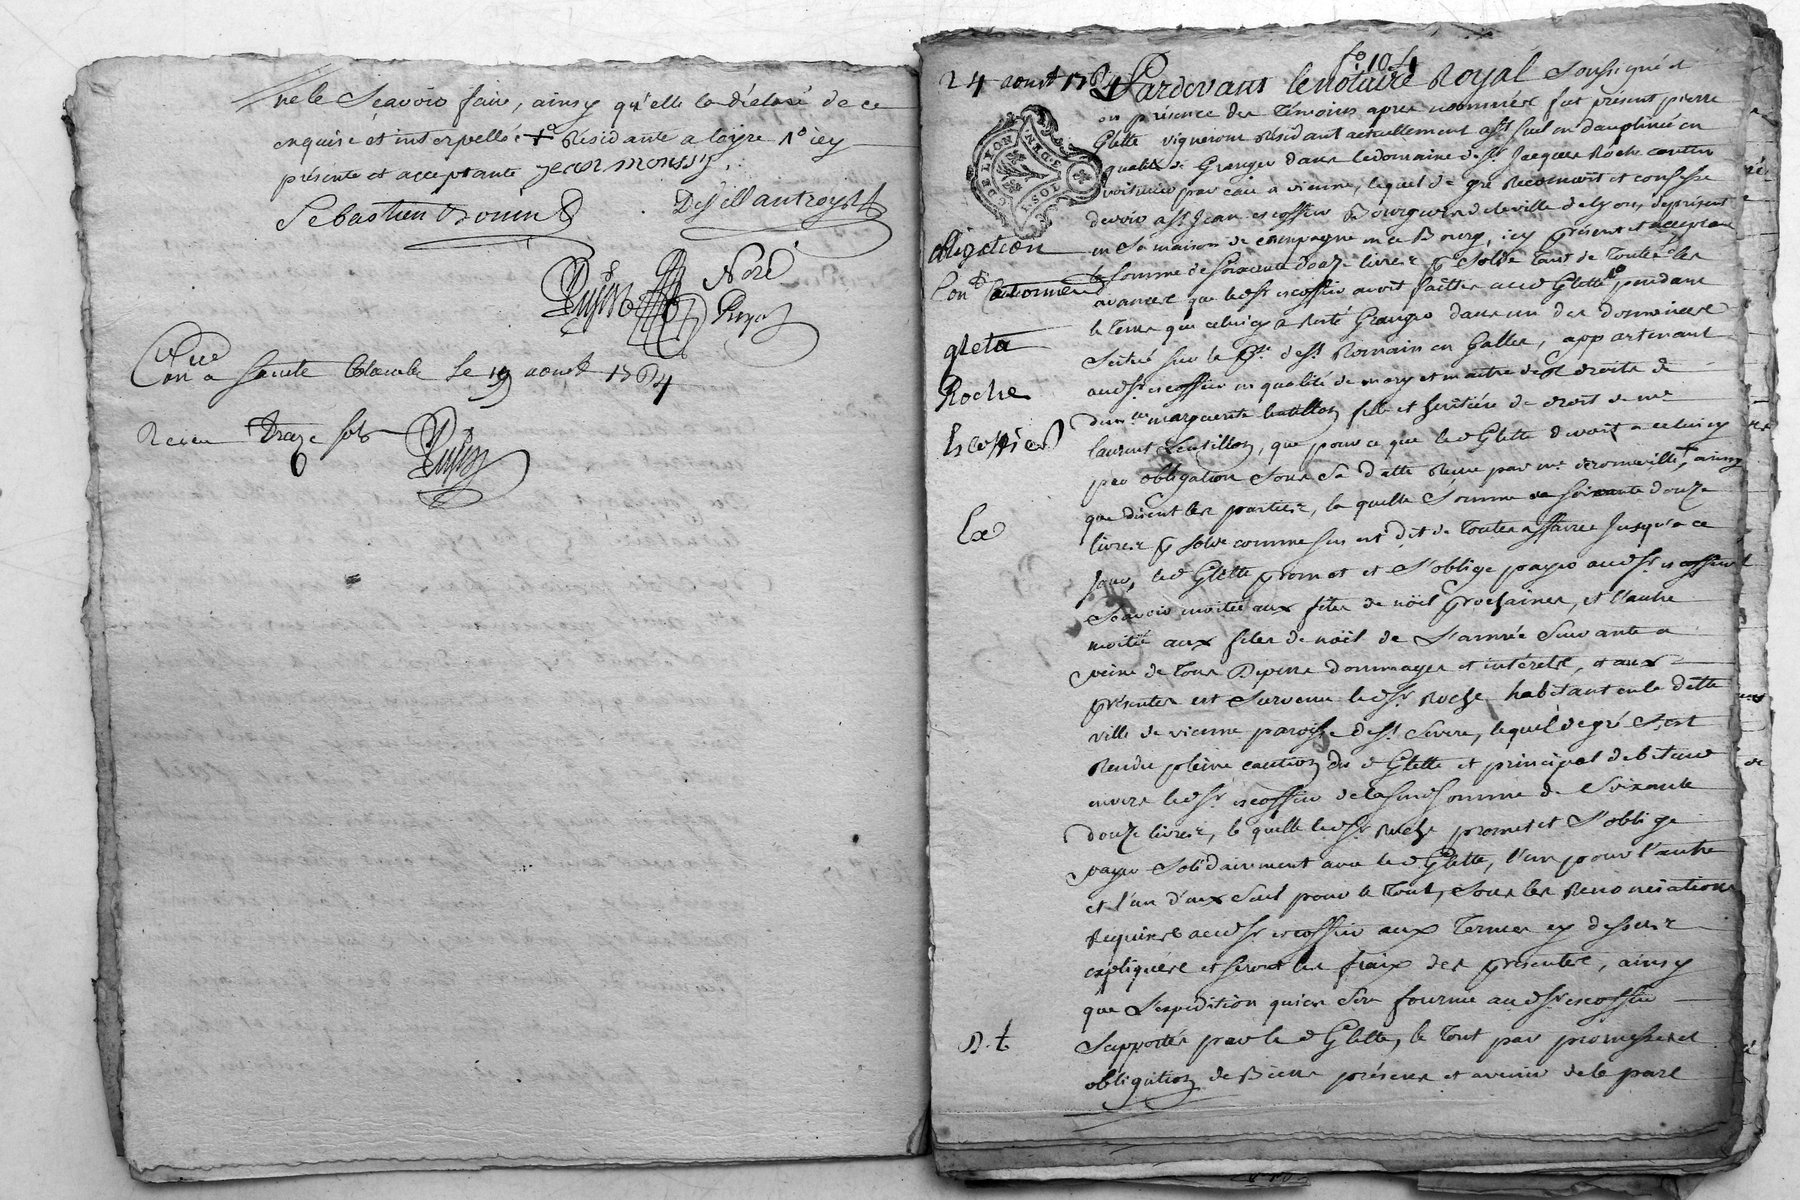 ne le Sçavoir faire, ainsy qu'elle la déclaré de ce
enquise et interpellée + Residante a loyre icy
présente et acceptante jean moussy
Sebastien bonin
Puyson Nore Royal
Con.lé a Sainte Colombe le 19 aoust 1764
Receu Treze sols
Puyson
f.º 104
24 aoust 1764
Pardevant le notaire Royal Soussigné et
en présence des Témoins apres nommées fut présent pierre
Glette vigneron Résidant actuellement a en dauphiné en
qualité de Granger dans le domaine de Sr Jacques Roche
voiturier par eau a vienne, lequel de gré Reconnoit et confesse
devoir a Sr Jean escoffier Bourgeois de la ville de Lyon, de présent
en Sa maison de campagne en ce Bourg, icy présent et acceptant
la Somme de Soixante douze livres p. Solde tant de Toutes les
avances que led Sr escoffier avoit faittes aud Glette pendant
le Tems que celuicy a resté Granger dans un des domaines
Scitué sur la p.sse de St Romain en Galles, appartenant
aud Sr escoffier en qualité de mary et maitre des droits de
marguerite lentillon fille et heritière de droit de me
laurent Lentillon, que pour ce que led Glette devoit a celuicy
par obligation Sous Sa datte Receue par me deromeville, ainsy
que disent les parties, la quelle Somme de Soixante douze
livres p. Solde comme sus est dit de Toutes affaires jusqu'a ce
jour, led Glette promet et S'oblige payer aud Sr escoffier
Sçavoir moitié aux fêtes de nöel prochaines, et l'autre
moitié aux fetes de nöel de L'année Suivante a
peine de Tous Depens dommages et intérets, et aux
présentes est Survenu led Sr Roche habitant en la ditte
ville de vienne paroisse de St Severe, lequel de gré S'est
Rendu pleine caution du d Glette et principal debiteur
envers led Sr escoffier de la Susd Somme de Soixante
douze livres, la quelle led Sr Roche promet et S'oblige
payer Solidairement avec led Glette, l'un pour l'autre
et l'un d'eux Seul pour le Tout, Sous les Renonciations
Requises aud Sr escoffier aux Termes cy dessus
expliquées et seront les fraix des présentes, ainsy
que L'expedition qui en Sera fournie aud Sr escoffier
Supportés par le d Glette, le Tout par promesses et
obligation de Biens présens et avenir de la part
obligation
Glette
Roche
Escoffier
Ex